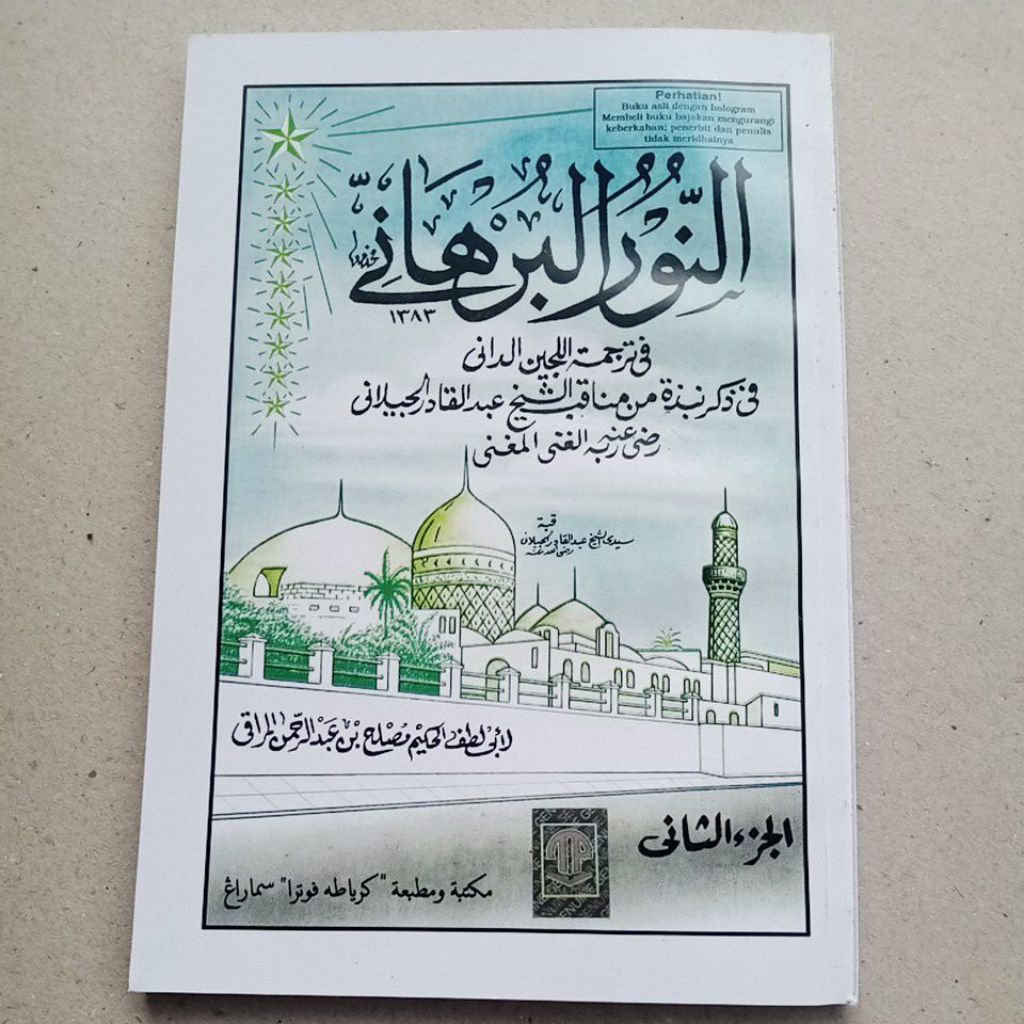 Perhatian!
Buku asli dengan hologram
Membeli buku bajakan mengurangi
keberkahan; penerbit dan penulis
tidak meridhainya
النُّوْرُ الْبُرْهَانِيّ
١٣٨٣
فى ترجمة اللجين الدانى
فى ذكر نبذة من مناقب الشيخ عبد القادر الجيلانى
رضى عنه ربه الغنى المغنى
قبة
سيدى الشيخ عبد القادر الجيلانى
رضى الله عنه
لأبى لطف الحكيم مُصْلِح بْن عَبْد الرحمن المراقى
الجزء الثانى
مكتبة ومطبعة "كرياطه فوترا" سماراڠ